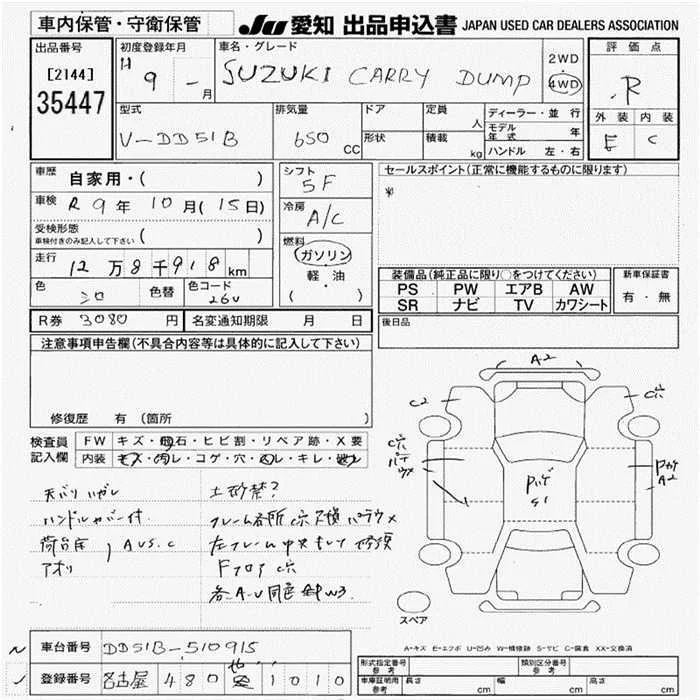 車内保管・守衛保管
JU 愛知 出品申込書 JAPAN USED CAR DEALERS ASSOCIATION
出品番号
[2144]
35447
初度登録年月
H 9 - 月
車名・グレード
SUZUKI CARRY DUMP
2WD
4WD
評価点
R
外装 内装
E C
型式
V-DD51B
排気量
650 CC
ドア
形状
定員
人
積載
kg
ディーラー・並行
モデル年式 年
ハンドル 左・右
車歴 自家用・( )
車検 R 9年 10月(15日)
受検形態
車検付きのみ記入して下さい ( )
走行 12万8千918km
色 シロ 色替
色コード 26U
シフト
5F
冷房
A/C
燃料
ガソリン
軽・油
( )
セールスポイント(正常に機能するものに限ります)
*
装備品(純正品に限り○をつけてください)
PS PW エアB AW
SR ナビ TV カワシート
新車保証書
有・無
R券 3080 円 名変通知期限 月 日
後日品
注意事項申告欄(不具合内容等は具体的に記入して下さい)
修復歴 有 (箇所 )
検査員記入欄
FW キズ・飛石・ヒビ割・リペア跡・X要
内装 キズ・汚レ・コゲ・穴・凹レ・キレ・破レ
天バリ ハガレ
土砂禁?
ハンドルカバー付
荷台床
アオリ
AUS.C
Fフロア C穴
A2
C2
C穴
C穴
パテ
ウメ
A2
S1
スペア
A-キズ E-エクボ U-凹み W-補修跡 S-サビ C-腐食 XX-交換済
車台番号 DD51B-510915
登録番号 名古屋 480 1010
形式指定番号
参考
類別区分番号
参考
車庫証明用
参考
長さ cm 幅 cm 高さ cm